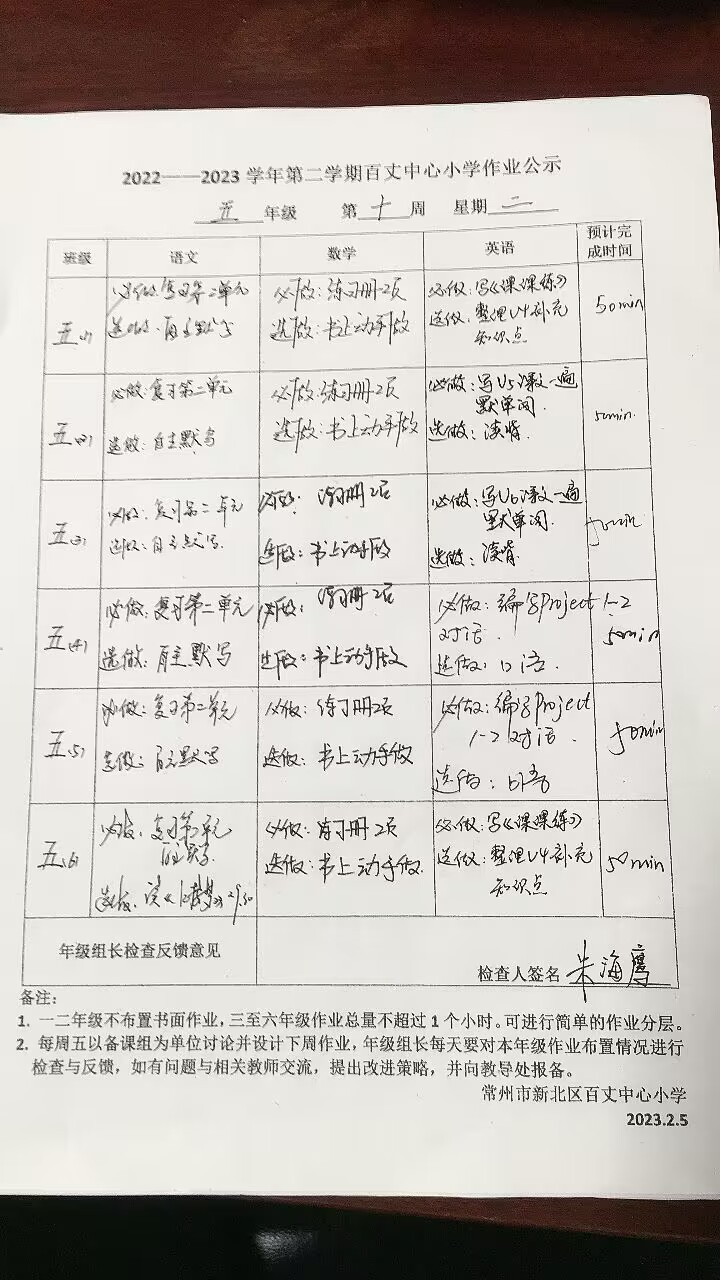 2022——2023 学年第二学期百丈中心小学作业公示
五 年级 第 十 周 星期 二
班级 语文 数学 英语 预计完成时间
五(1)
必做:复习第二单元
选做:自主默写
必做:练习册2页
选做:书上动手做
必做:写《课课练》
选做:整理U4补充
知识点
50min
五(2)
必做:复习第二单元
选做:自主默写
必做:练习册2页
选做:书上动手做
必做:写U5课文一遍
默单词.
选做:读背.
50min.
五(3)
必做:复习第二单元
选做:自主默写.
必做:练习册2页
选做:书上动手做
必做:写U6课文一遍
默单词.
选做:读背.
50min
五(4)
必做:复习第二单元
选做:自主默写
必做:练习册2页
选做:书上动手做
必做:编写Project 1-2
对话.
选做:口语.
50min
五(5)
必做:复习第二单元
选做:自主默写
必做:练习册2页
选做:书上动手做
必做:编写Project
1-2 对话.
选做:口语
50min
五(6)
必做:复习第二单元
自主默写.
选做:读《红楼梦》
必做:练习册2页
选做:书上动手做.
必做:写《课课练》
选做:整理U4补充
知识点
50min
年级组长检查反馈意见
检查人签名 朱海鹰
备注:
1. 一二年级不布置书面作业,三至六年级作业总量不超过 1 个小时。可进行简单的作业分层。
2. 每周五以备课组为单位讨论并设计下周作业,年级组长每天要对本年级作业布置情况进行
检查与反馈,如有问题与相关教师交流,提出改进策略,并向教导处报备。
常州市新北区百丈中心小学
2023.2.5